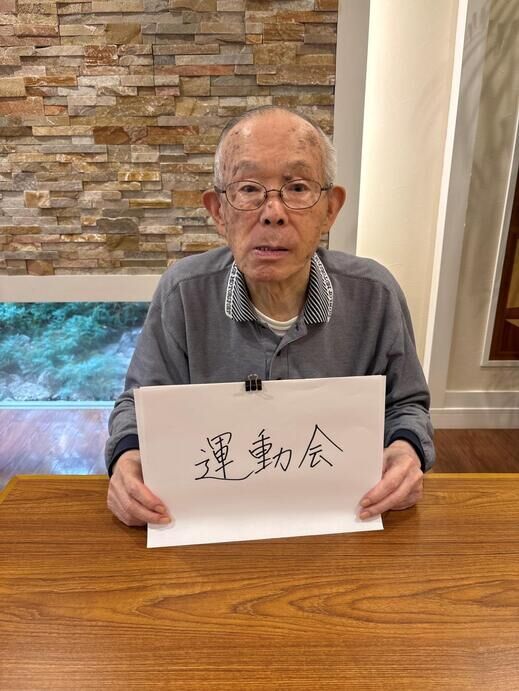 運動会